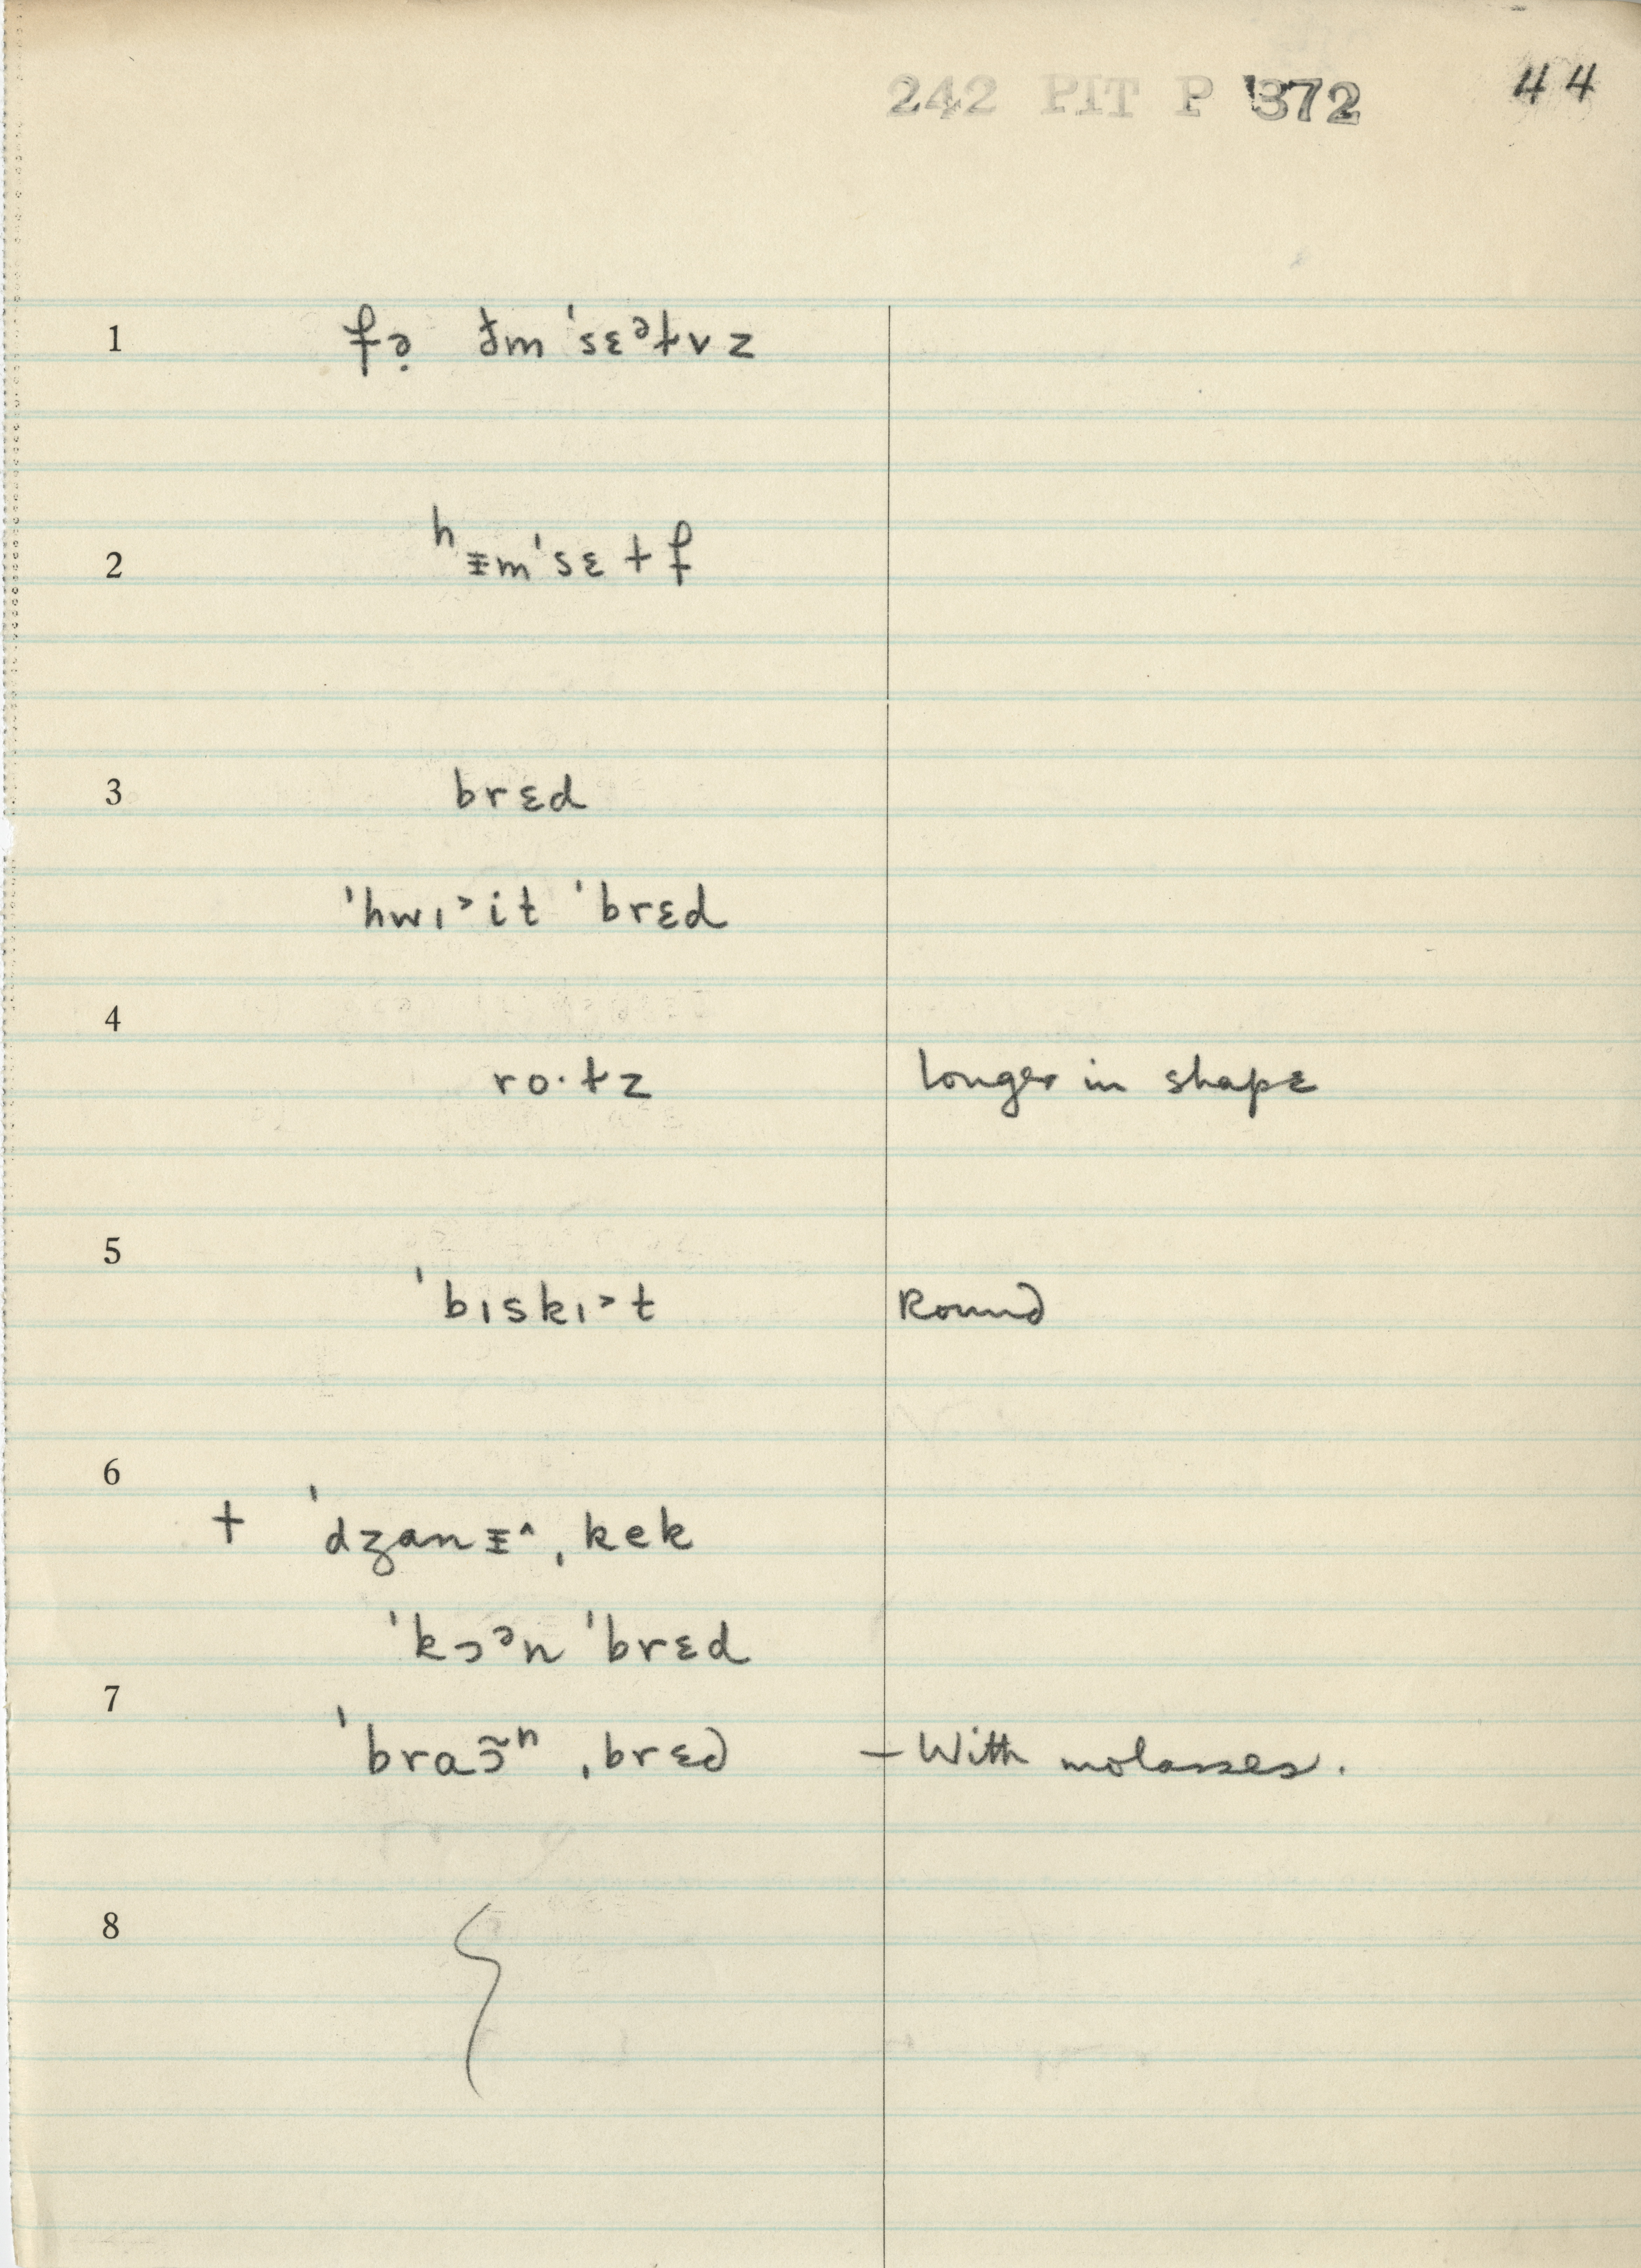 242 PIT P 372 44
1 fə̣ ðm ˈsɛᵊɫvz
2 ʰɪ̵mˈsɛɫf
3 brɛd
ˈhwɪ˃it ˈbrɛd
4
ro·ɫz longer in shape
5
ˈbɪskɪ˃t Round
6
+ ˈdʒanɪ̵˄ˌkek
ˈkɔᵊn ˈbrɛd
7
ˈbraɔ̃ⁿ ˌbrɛd – With molasses.
8